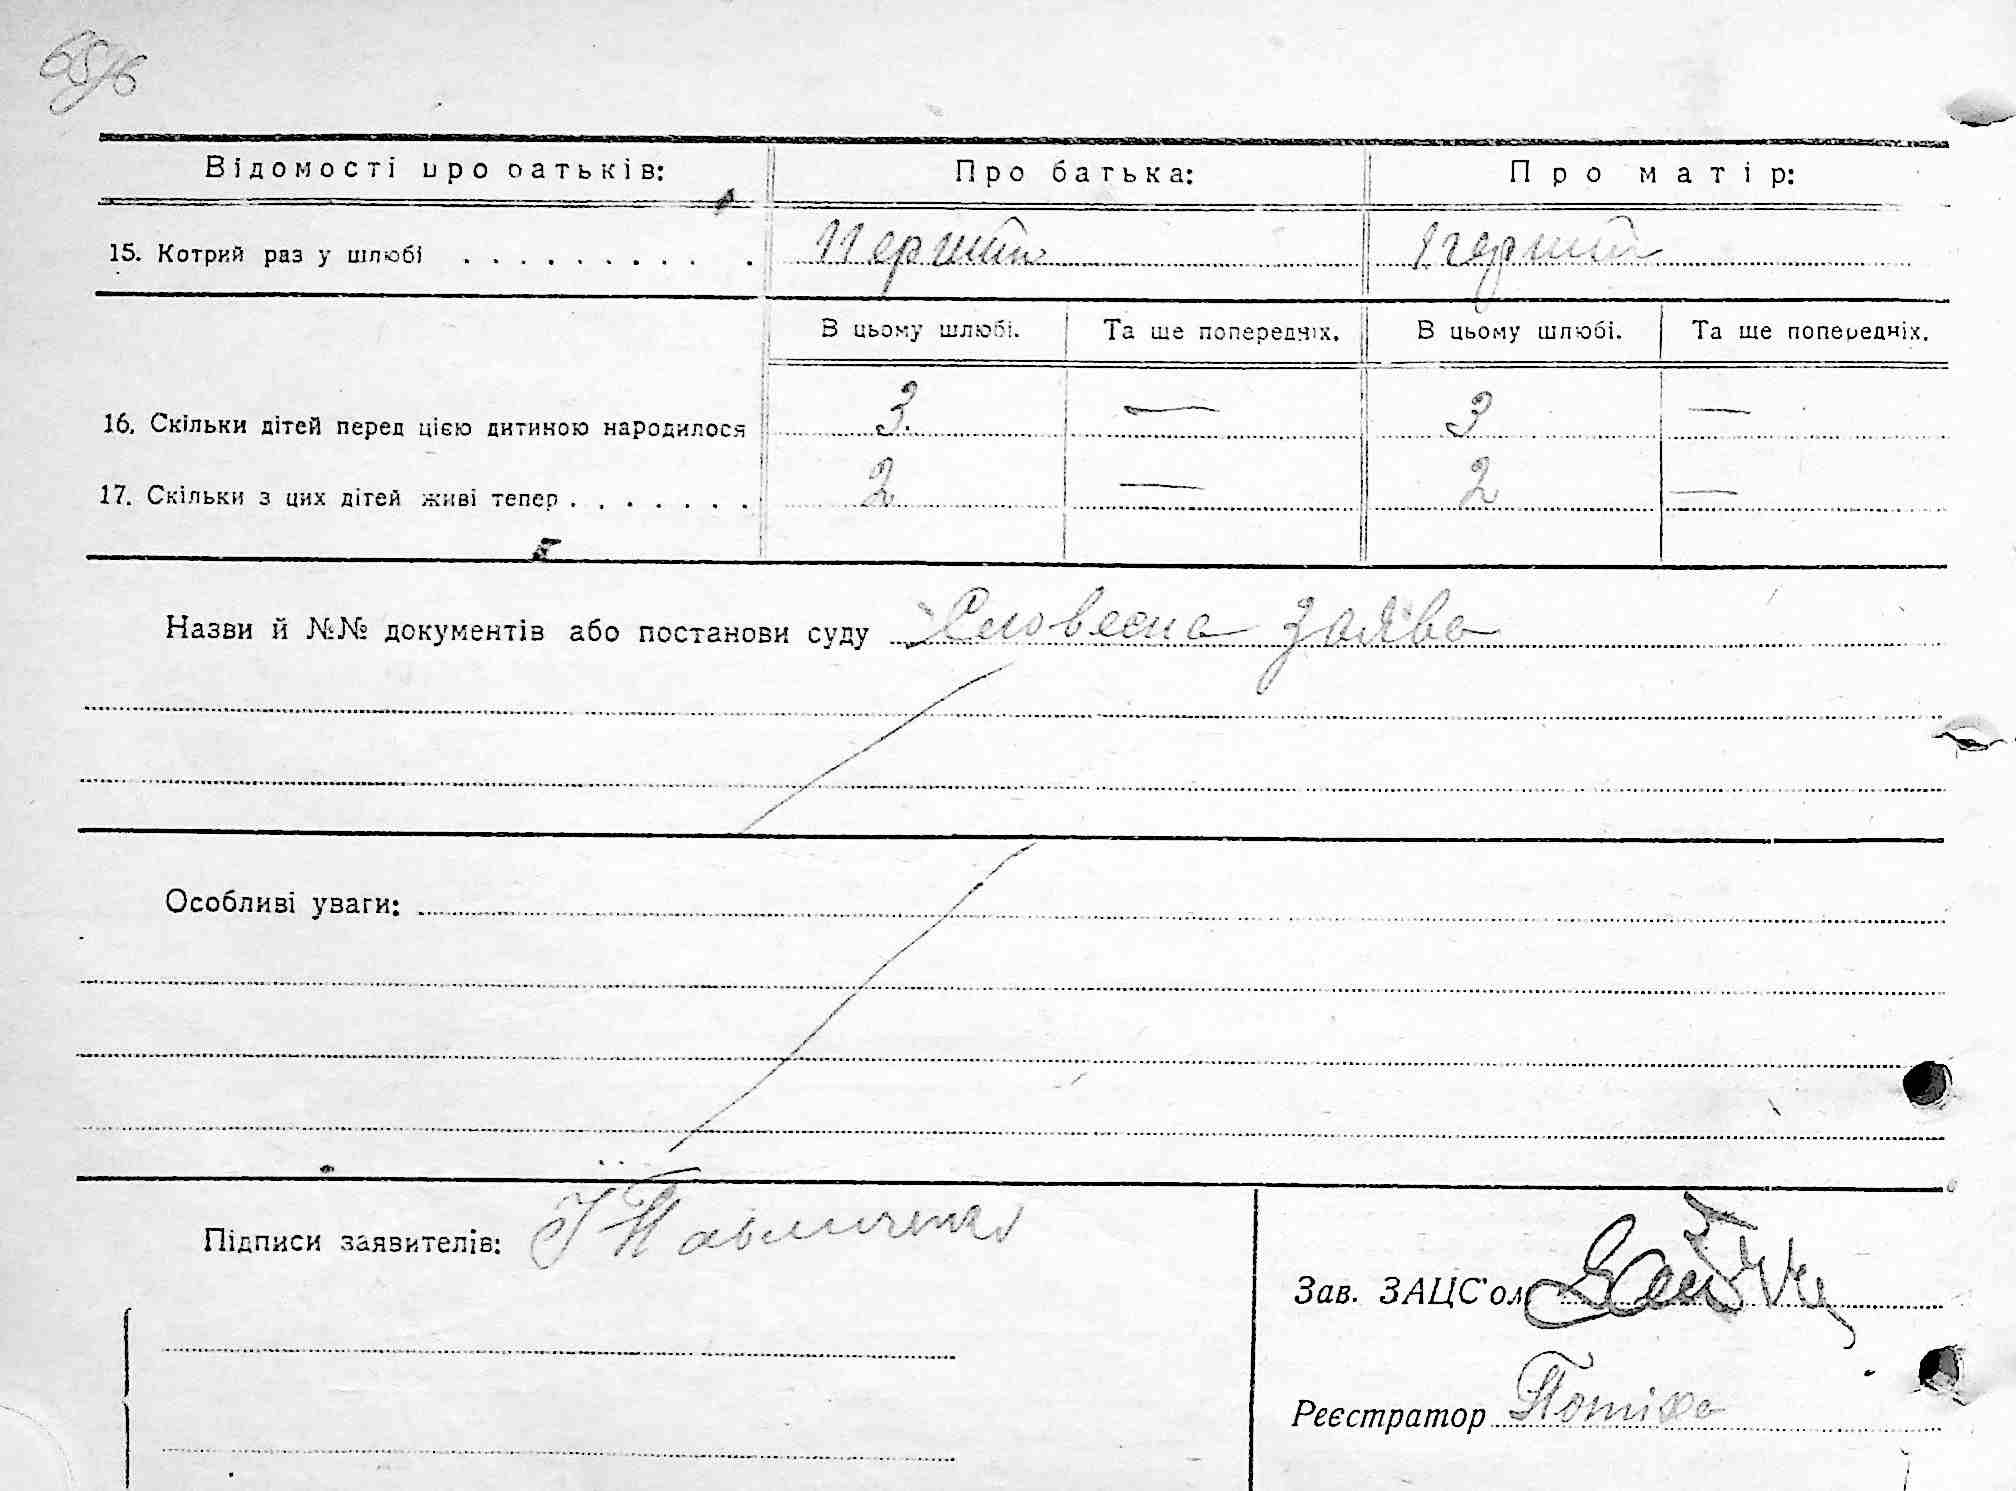 Відомості про батьків: Про батька: Про матір:
15. Котрий раз у шлюбі . . . . . . . . . . . Перший Перший
В цьому шлюбі. Та ще попередніх. В цьому шлюбі. Та ще попередніх.
16. Скільки дітей перед цією дитиною народилося 3. — 3 —
17. Скільки з цих дітей живі тепер . . . . . . . 2 — 2 —
Назви й №№ документів або постанови суду Словесна заява
Особливі уваги:
Підписи заявителів:
Зав. ЗАЦС'ом
Реєстратор